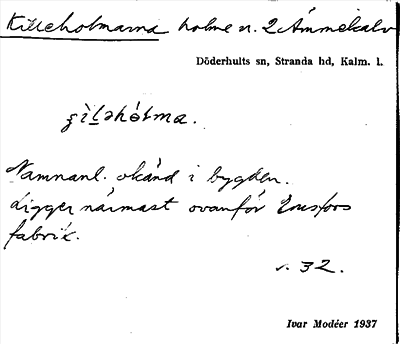 Killeholmarna holme n. 2 Ämmekalv
Döderhults sn, Stranda hd, Kalm. l.
Namnanl. okänd i bygden.
Ligger närmast ovanför Emsfors
fabrik.
s. 32.
Ivar Modéer 1937